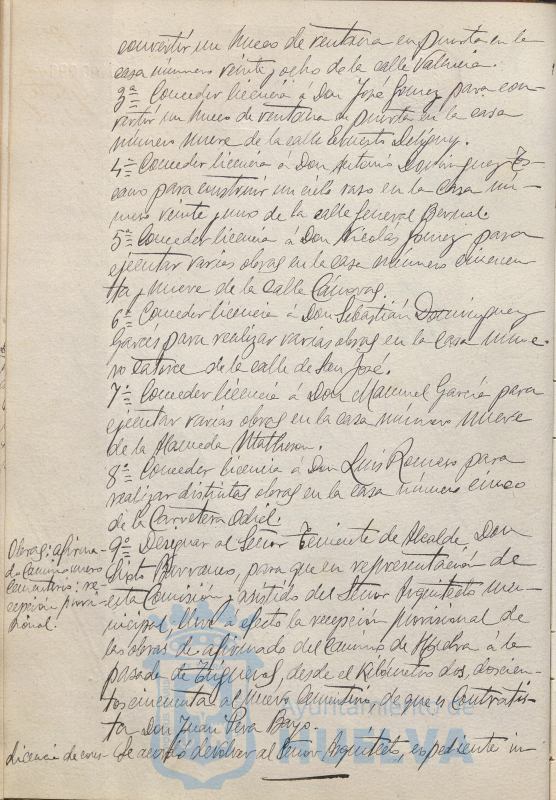 convertir un hueco de ventana en puerta en la
casa número veinte y ocho de la calle Valencia.
3ª Conceder licencia á Don José Gómez para con-
vertir un hueco de ventana en puerta en la casa
número nueve de la calle Ernesto Deligny.
4ª Conceder licencia á Don Antonio Dominguez
cano para construir un cielo raso en la casa nú-
mero veinte y uno de la calle General Bernal.
5ª Conceder licencia á Don Nicolás Gómez para
ejecutar varias obras en la casa número cincuen-
ta y nueve de la calle Cánovas.
6ª Conceder licencia á Don Sebastián Dominguez
Garcés para realizar varias obras en la casa núme-
ro catorce de la calle de San José.
7ª Conceder licencia á Don Manuel García para
ejecutar varias obras en la casa número nueve
de la Alameda Matheson.
8ª Conceder licencia á Don Luis Romero para
realizar distintas obras en la casa número cinco
de la Carretera Odiel.
Obras: afirma-
do camino nuevo
Cementerio: re-
cepción provi-
sional.
9ª Designar al Señor Teniente de Alcalde Don
Sixto Borrero, para que en representación de
esta Comisión y asistido del Señor Arquitecto mu-
nicipal lleve a efecto la recepción provisional de
las obras de afirmado del camino de á la
pasada de desde el kilómetro dos, doscien-
tos cincuenta al nuevo Cementerio de que es Contratis-
ta Don Juan Bayo.
licencia de cons-
Se acordó devolver al Señor Arquitecto, expediente in-
Ayuntamiento de
HUELVA